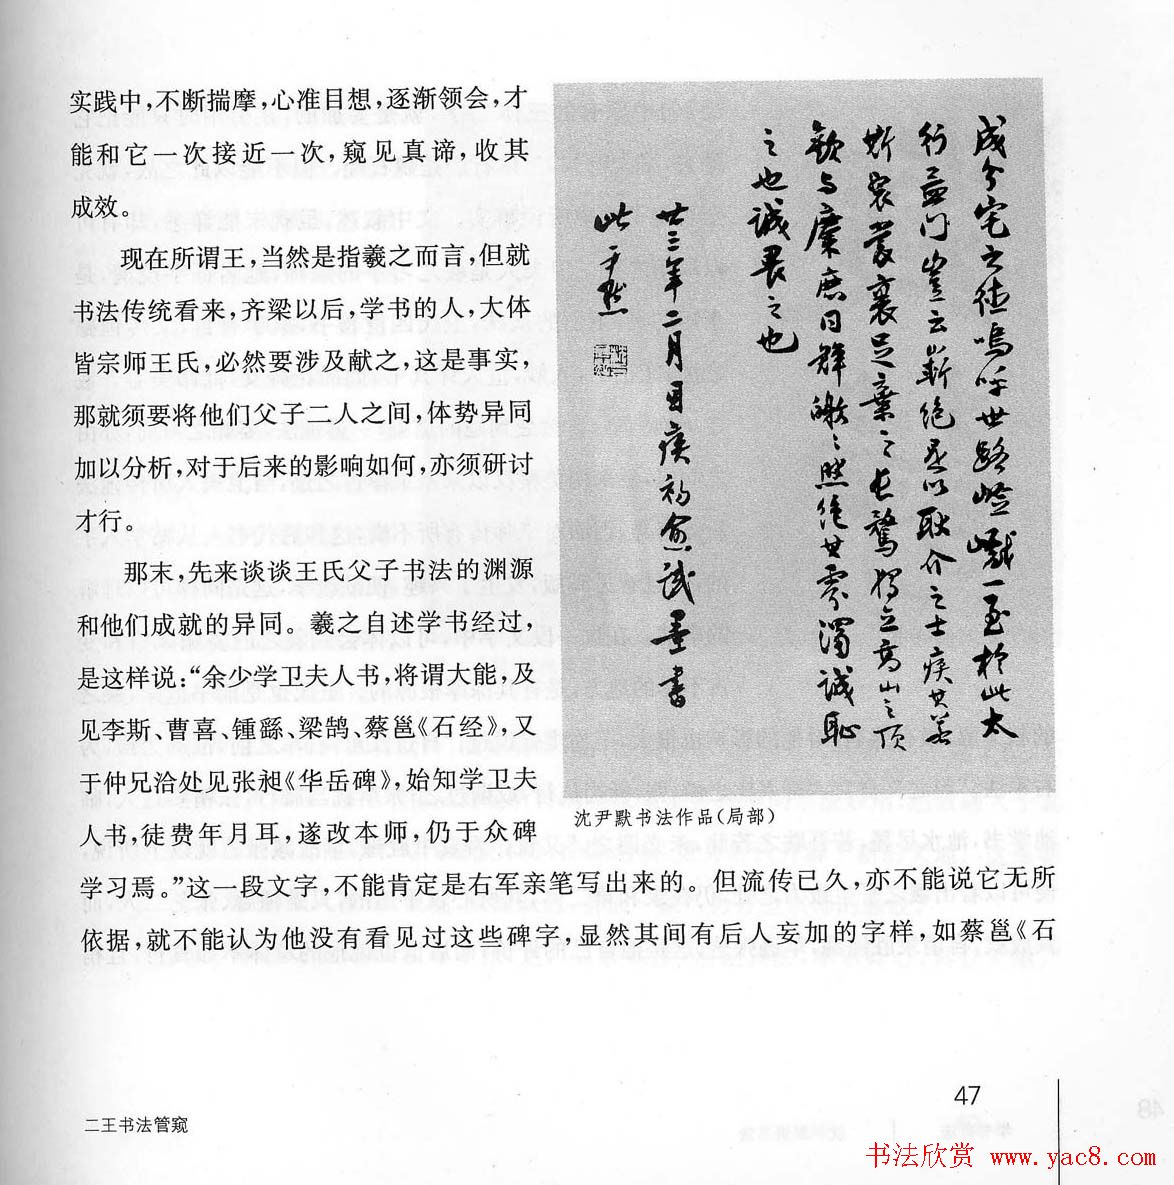 实践中，不断揣摩，心准目想，逐渐领会，才
能和它一次接近一次，窥见真谛，收其
成效。
现在所谓王，当然是指羲之而言，但就
书法传统看来，齐梁以后，学书的人，大体
皆宗师王氏，必然要涉及献之，这是事实，
那就须要将他们父子二人之间，体势异同
加以分析，对于后来的影响如何，亦须研讨
才行。
那末，先来谈谈王氏父子书法的渊源
和他们成就的异同。羲之自述学书经过，
是这样说：“余少学卫夫人书，将谓大能，及
见李斯、曹喜、锺繇、梁鹄、蔡邕《石经》，又
于仲兄洽处见张昶《华岳碑》，始知学卫夫
人书，徒费年月耳，遂改本师，仍于众碑
学习焉。”这一段文字，不能肯定是右军亲笔写出来的。但流传已久，亦不能说它无所
依据，就不能认为他没有看见过这些碑字，显然其间有后人妄加的字样，如蔡邕《石
成分宅之德嗚呼世路嶮巇一至於此太
行孟门豈云嶄絕是以耿介之士疾其若
斯裂裳裹足棄之長騖獨立高山之頂
歡与麋鹿同群皦〻然絕其雰濁誠恥
之也誠畏之也
廿三年二月目疾初愈試墨書
此尹默
沈尹默书法作品（局部）
47
二王书法管窥
书法欣赏 www.yac8.com